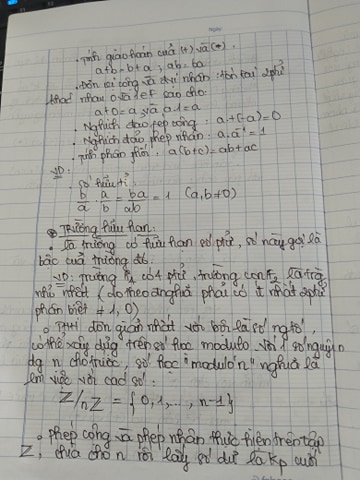 . Tính giao hoán của (+) và (*).
a+b = b+a ; ab = ba
. Đơn vị cộng và đvị nhân: tồn tại 2 phtử
khác nhau 0 và 1 ∈ F sao cho:
a+0 = a và a.1 = a
. Nghịch đảo phép cộng: a+(-a) = 0
. Nghịch đảo phép nhân: a.a⁻¹ = 1
. Tính phân phối: a(b+c) = ab+ac
VD:
Số hữu tỉ:
b/a . a/b = ba/ab = 1 (a,b≠0)
Trường hữu hạn:
. là trường có hữu hạn số phtử, số này gọi là
bậc của trường đó.
VD: trường F4 có 4 phtử, trường con F2 là trg
nhỏ nhất (do theo đnghĩa phải có ít nhất 2 phtử
phân biệt 1, 0)
. THH đơn giản nhất với bậc là số ngtố,
có thể xây dựng trên số học modulo. Với 1 số nguyên
dg n cho trước, số học "modulo n" nghĩa là
làm việc với các số:
Z/nZ = {0,1,...,n-1}
. phép cộng và phép nhân thực hiện trên tập
Z, chia cho n rồi lấy số dư là kq cuối